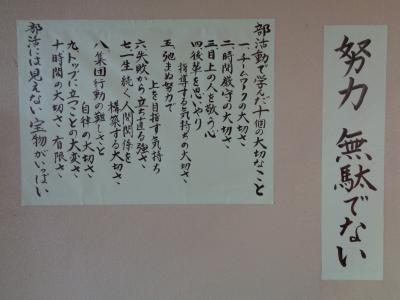 努力 無駄でない
部活動で学んだ十個の大切なこと
一、チームワークの大切さ、
二、時間厳守の大切さ、
三、目上の人を敬う心
四、後輩を思いやり
指導する気持ちの大切さ
五、弛まぬ努力で
上を目指す気持ち
六、失敗から立ち直る強さ、
七、一生続く人間関係を
構築する大切さ、
八、集団行動の難しさと
自律の大切さ、
九、トップに立つことの大変さ、
十、時間の大切さ、有限さ、
部活には見えない宝物がいっぱい